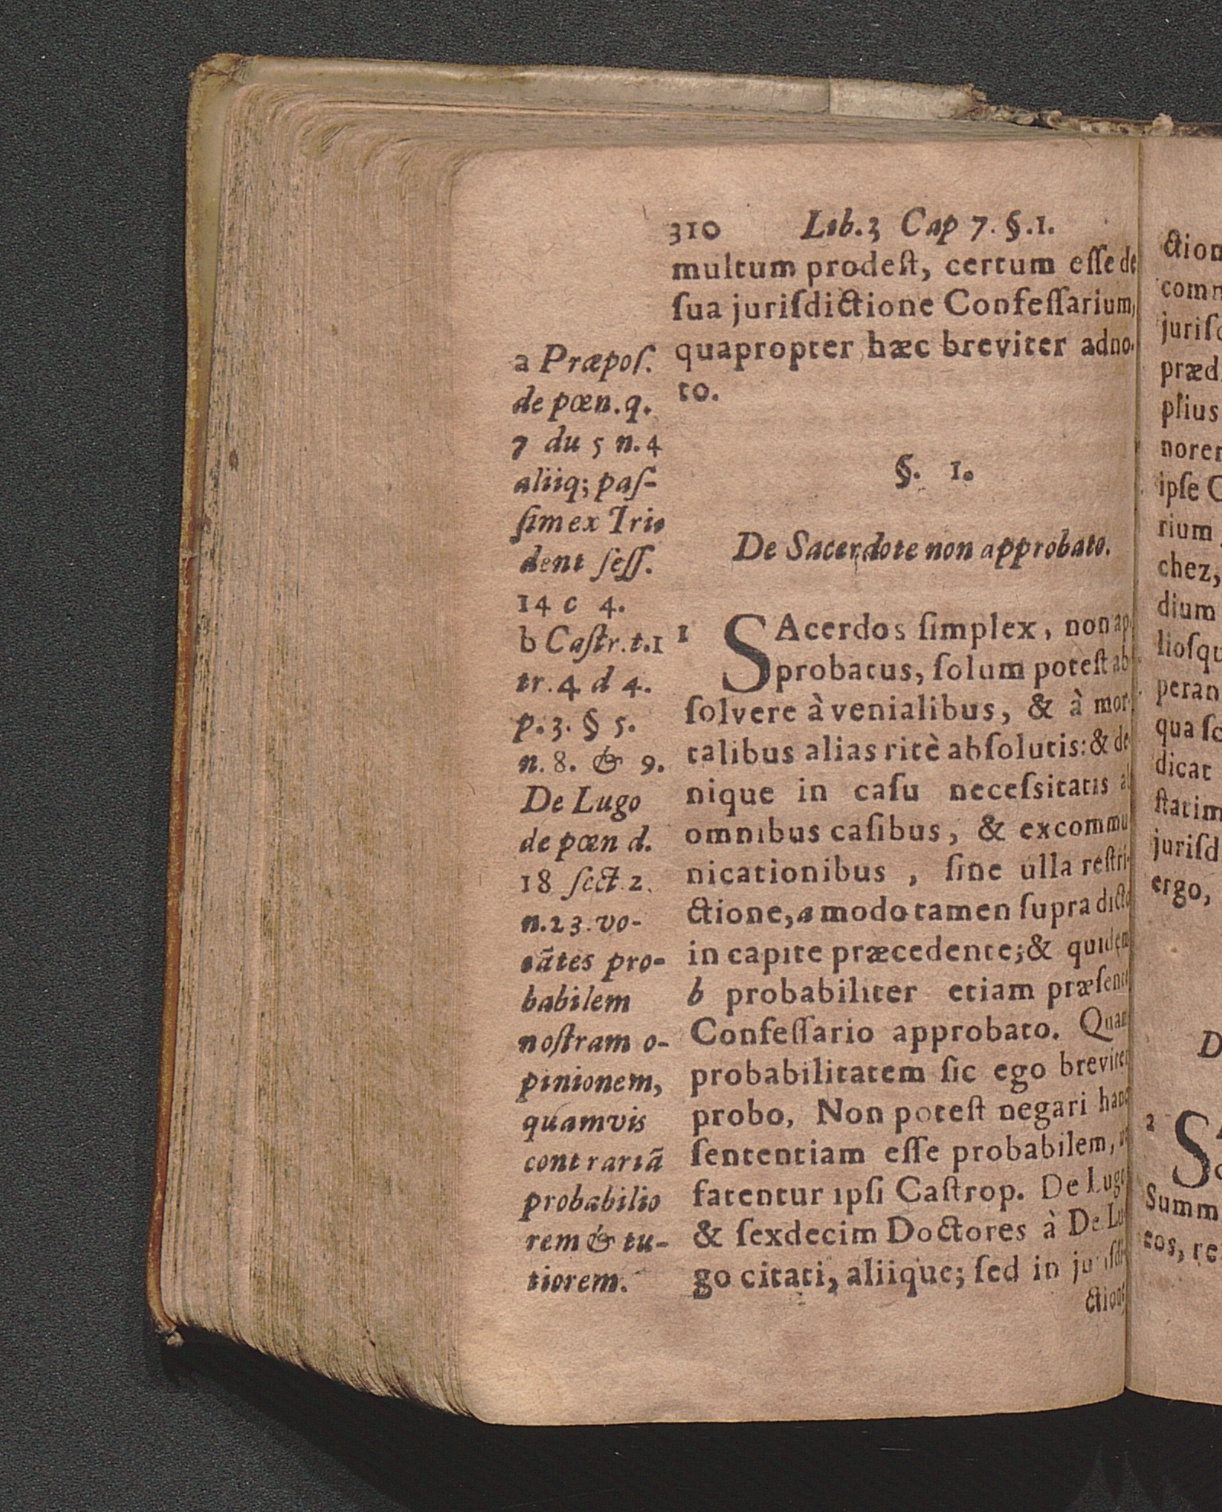 310 Lib.3 Cap 7. §.1.
multum prodeſt, certum eſſe de
ſua juriſdictione Confeſſarium,
quapropter hæc breviter adno-
to.
§. 1.
De Sacerdote non approbato.
1 SAcerdos ſimplex, non ap
probatus, ſolum poteſt ab
ſolvere à venialibus, & à mor-
talibus alias ritè abſolutis: & de
nique in caſu neceſsitatis
omnibus caſibus, & excommu
nicationibus, ſine ulla reſtri-
ctione, a modo tamen ſupra dicto
in capite præcedente; & quidem
b probabiliter etiam præſente
Confeſſario approbato. Quam
probabilitatem ſic ego breviter
probo, Non poteſt negari hanc
ſententiam eſſe probabilem,
fatentur ipſi Caſtrop. De Lugo
& ſexdecim Doctores à De Lu
go citati, aliique; ſed in juriſdi-
ctione
a Præpoſ.
de pœn. q.
7 du 5 n. 4
aliiq; paſ-
ſim ex Tri-
dent ſeſſ.
14 c 4.
b Caſtr. t. 1
tr. 4 d 4.
p. 3. § 5.
n. 8. & 9.
De Lugo
de pœn d.
18 ſect. 2.
n. 23. vo-
cātes pro-
babilem
noſtram o-
pinionem,
quamvis
contrariā
probabilio
rem & tu-
tiorem.
ction
comm
juriſd
præd
plius
norem
ipſe C
rium
chez,
dium
lioſqu
peran
qua ſc
dicat
ſtatim
juriſd
ergo,
D
2 S
Summ
eos, re